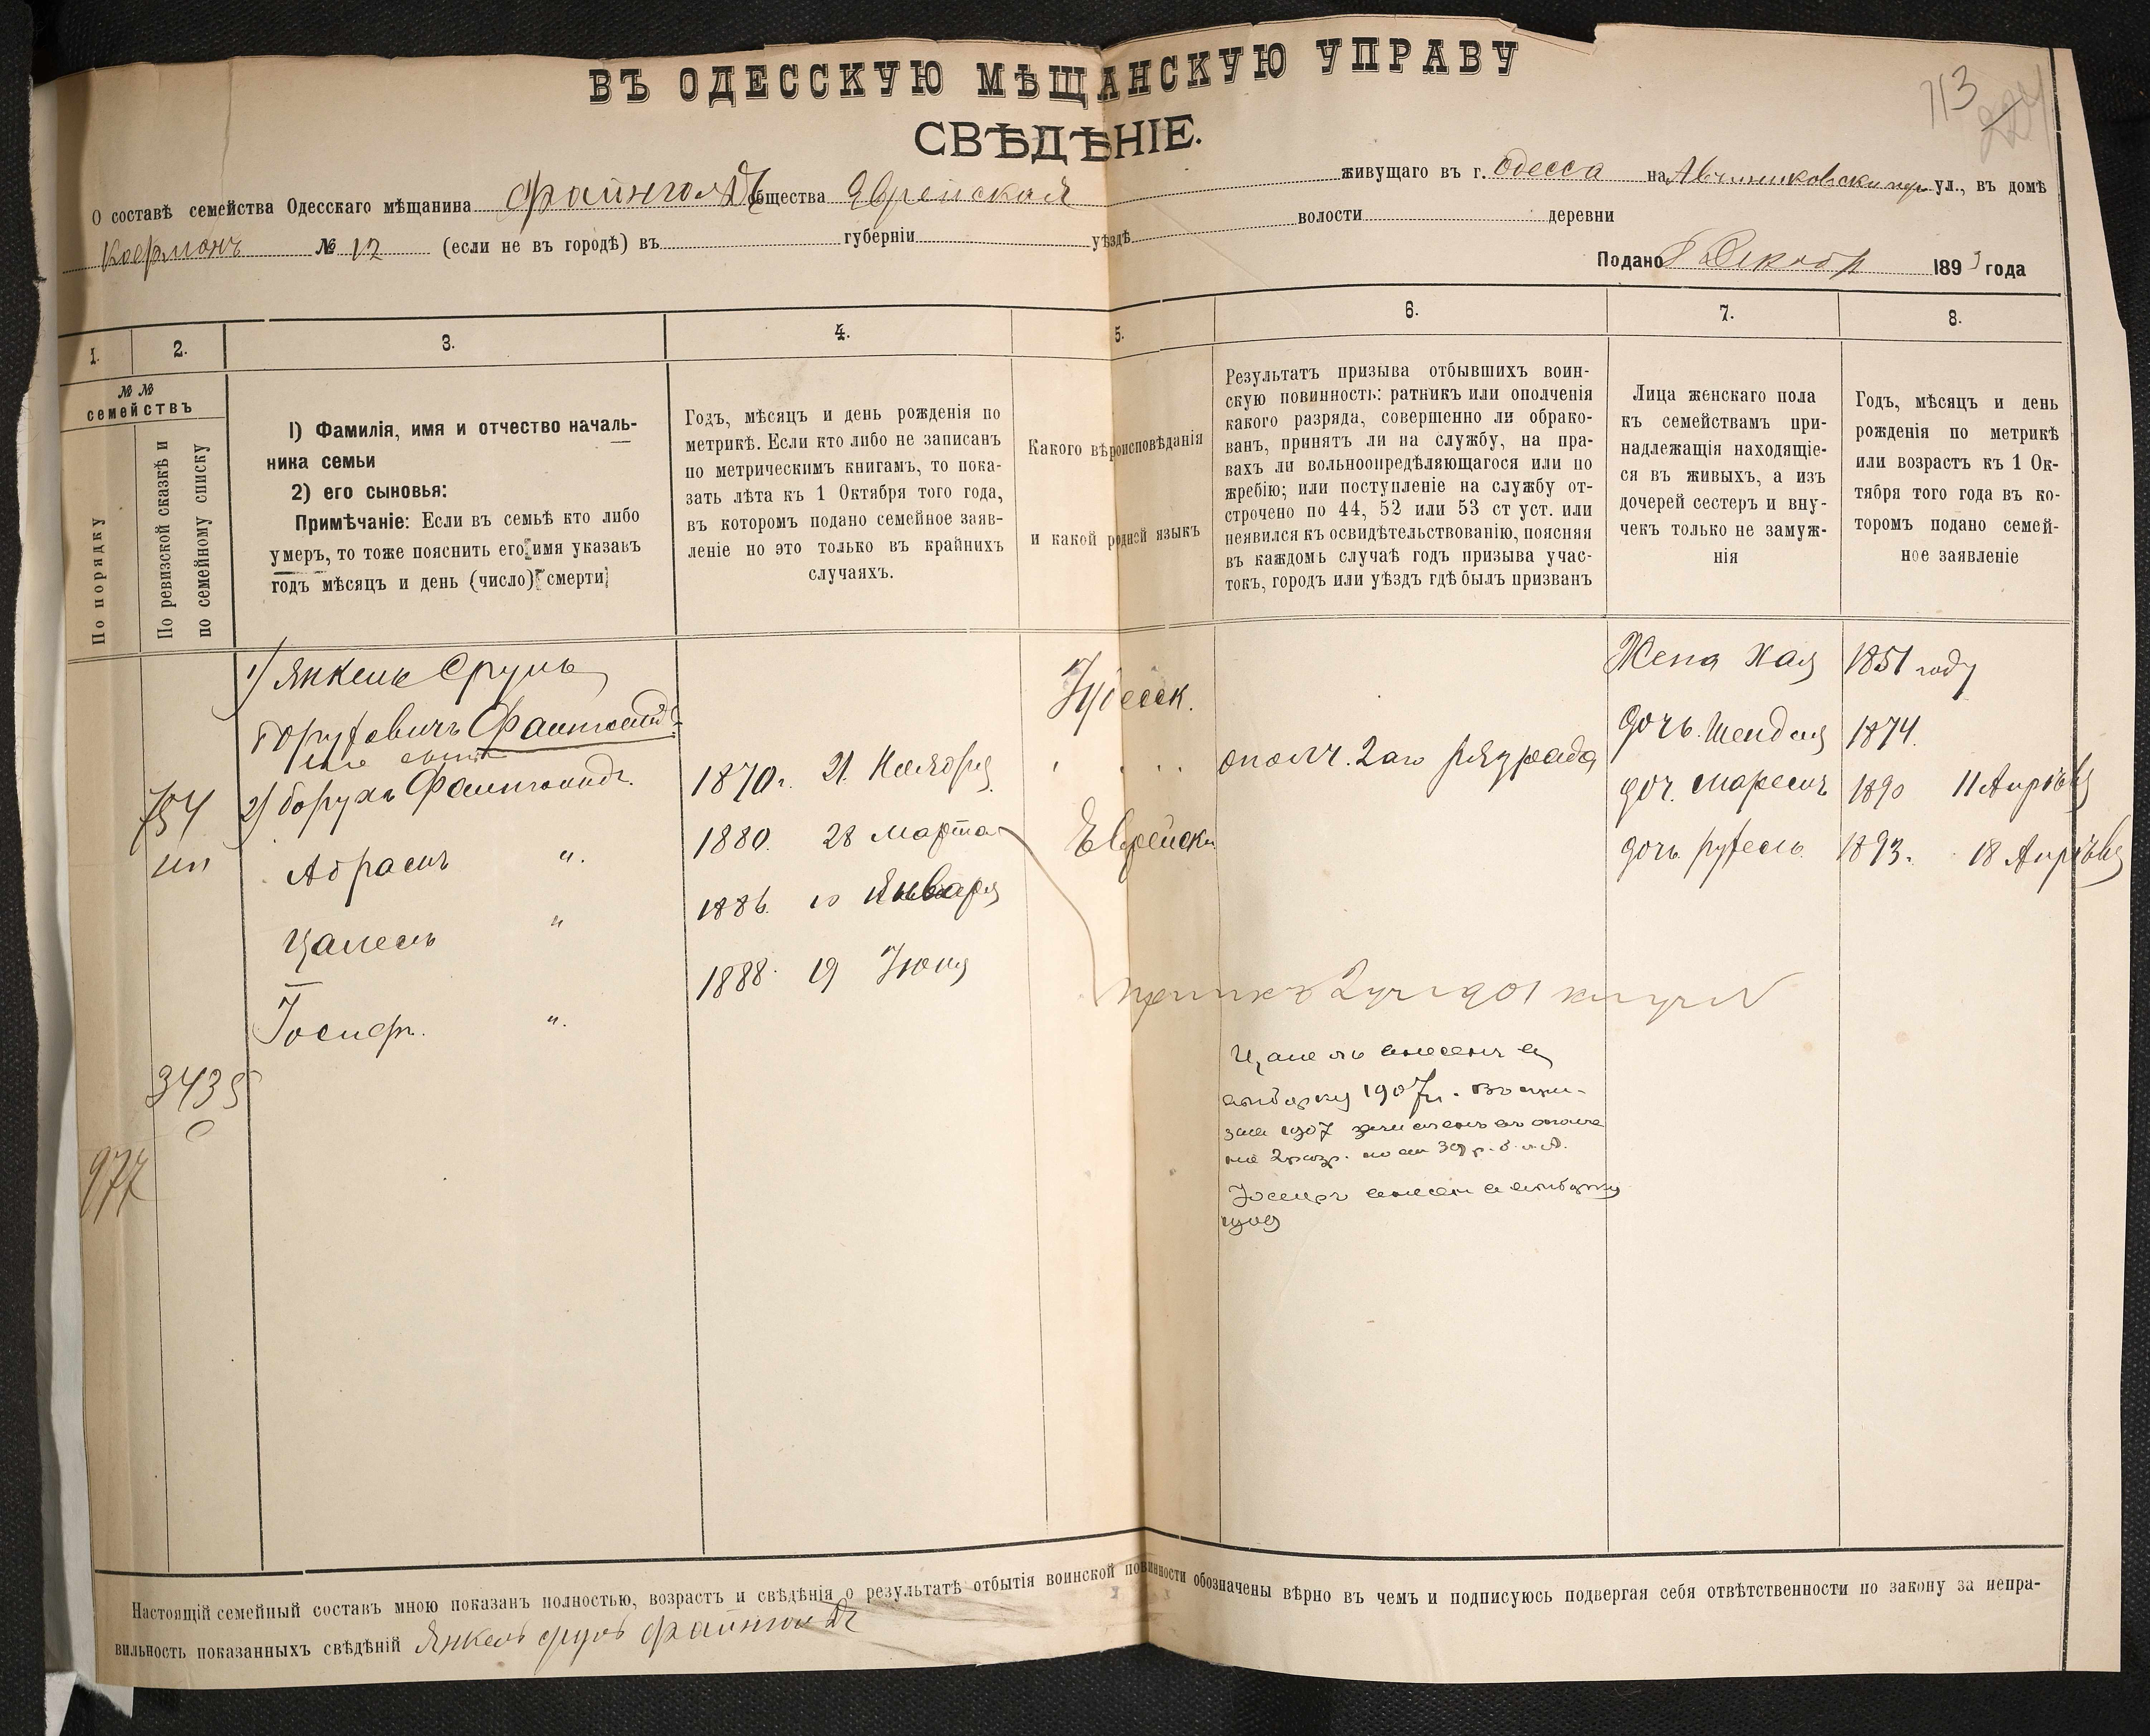 ВЪ ОДЕССКУЮ МѢЩАНСКУЮ УПРАВУ
113
224
СВѢДѢНІЕ.
О составѣ семейства Одесскаго мѣщанина Файнголдъ общества Еврейская живущаго въ г. Одесса на ул., въ домѣ
№ 12 (если не въ городѣ) въ губерніи уѣздѣ волости деревни
Подано 8 Декабр 1893 года
1.
2.
3.
4.
5.
6.
7.
8.
№ №
семействъ
По порядку
По ревизской сказкѣ и
по семейному списку
1) Фамилія, имя и отчество началь-
ника семьи
2) его сыновья:
Примѣчаніе: Если въ семьѣ кто либо
умеръ, то тоже пояснить его имя указавъ
годъ мѣсяцъ и день (число) смерти
Годъ, мѣсяцъ и день рожденія по
метрикѣ. Если кто либо не записанъ
по метрическимъ книгамъ, то пока-
зать лѣта къ 1 Октября того года,
въ которомъ подано семейное заяв-
леніе но это только въ крайнихъ
случаяхъ.
Какого вѣроисповѣданія
и какой родной языкъ
Результатъ призыва отбывшихъ воин-
скую повинность: ратникъ или ополченія
какого разряда, совершенно ли обрако-
ванъ, принятъ ли на службу, на пра-
вахъ ли вольноопредѣляющагося или по
жребію; или поступленіе на службу от-
строчено по 44, 52 или 53 ст уст. или
неявился къ освидѣтельствованію, поясняя
въ каждомъ случаѣ годъ призыва учас-
токъ, городъ или уѣздъ гдѣ былъ призванъ
Лица женскаго пола
къ семействамъ при-
надлежащія находящіе-
ся въ живыхъ, а изъ
дочерей сестеръ и вну-
чекъ только не замуж-
нія
Годъ, мѣсяцъ и день
рожденія по метрикѣ
или возрастъ къ 1 Ок-
тября того года въ ко-
торомъ подано семей-
ное заявленіе
1) Янкель Сруль
Боруховичъ Файнголдъ
2) Борухъ Файнголдъ
1870 г. 21 Ноября
Абрамъ ".
1880. 28 Марта
"
1886. 10 Января
Іосифъ. ".
1888. 19 Іюня
Іудейск.
Еврейск.
ополч. 2 аго разряда
Жена Хая 1851 году
дочь. Шендля 1874.
доч. 1890 11 Апрѣля
дочь Рухель 1893. 18 Апрѣля
754
3435
977
Цалель внесенъ въ
выборку 1907 г.
Іосифъ внесен в выборку
1909
Настоящій семейный составъ мною показанъ полностью, возрастъ и свѣдѣнія о результатѣ отбытія воинской повинности обозначены вѣрно въ чемъ и подписуюсь подвергая себя отвѣтственности по закону за непра-
вильность показанныхъ свѣдѣній Янкель Сруль Файнголдъ